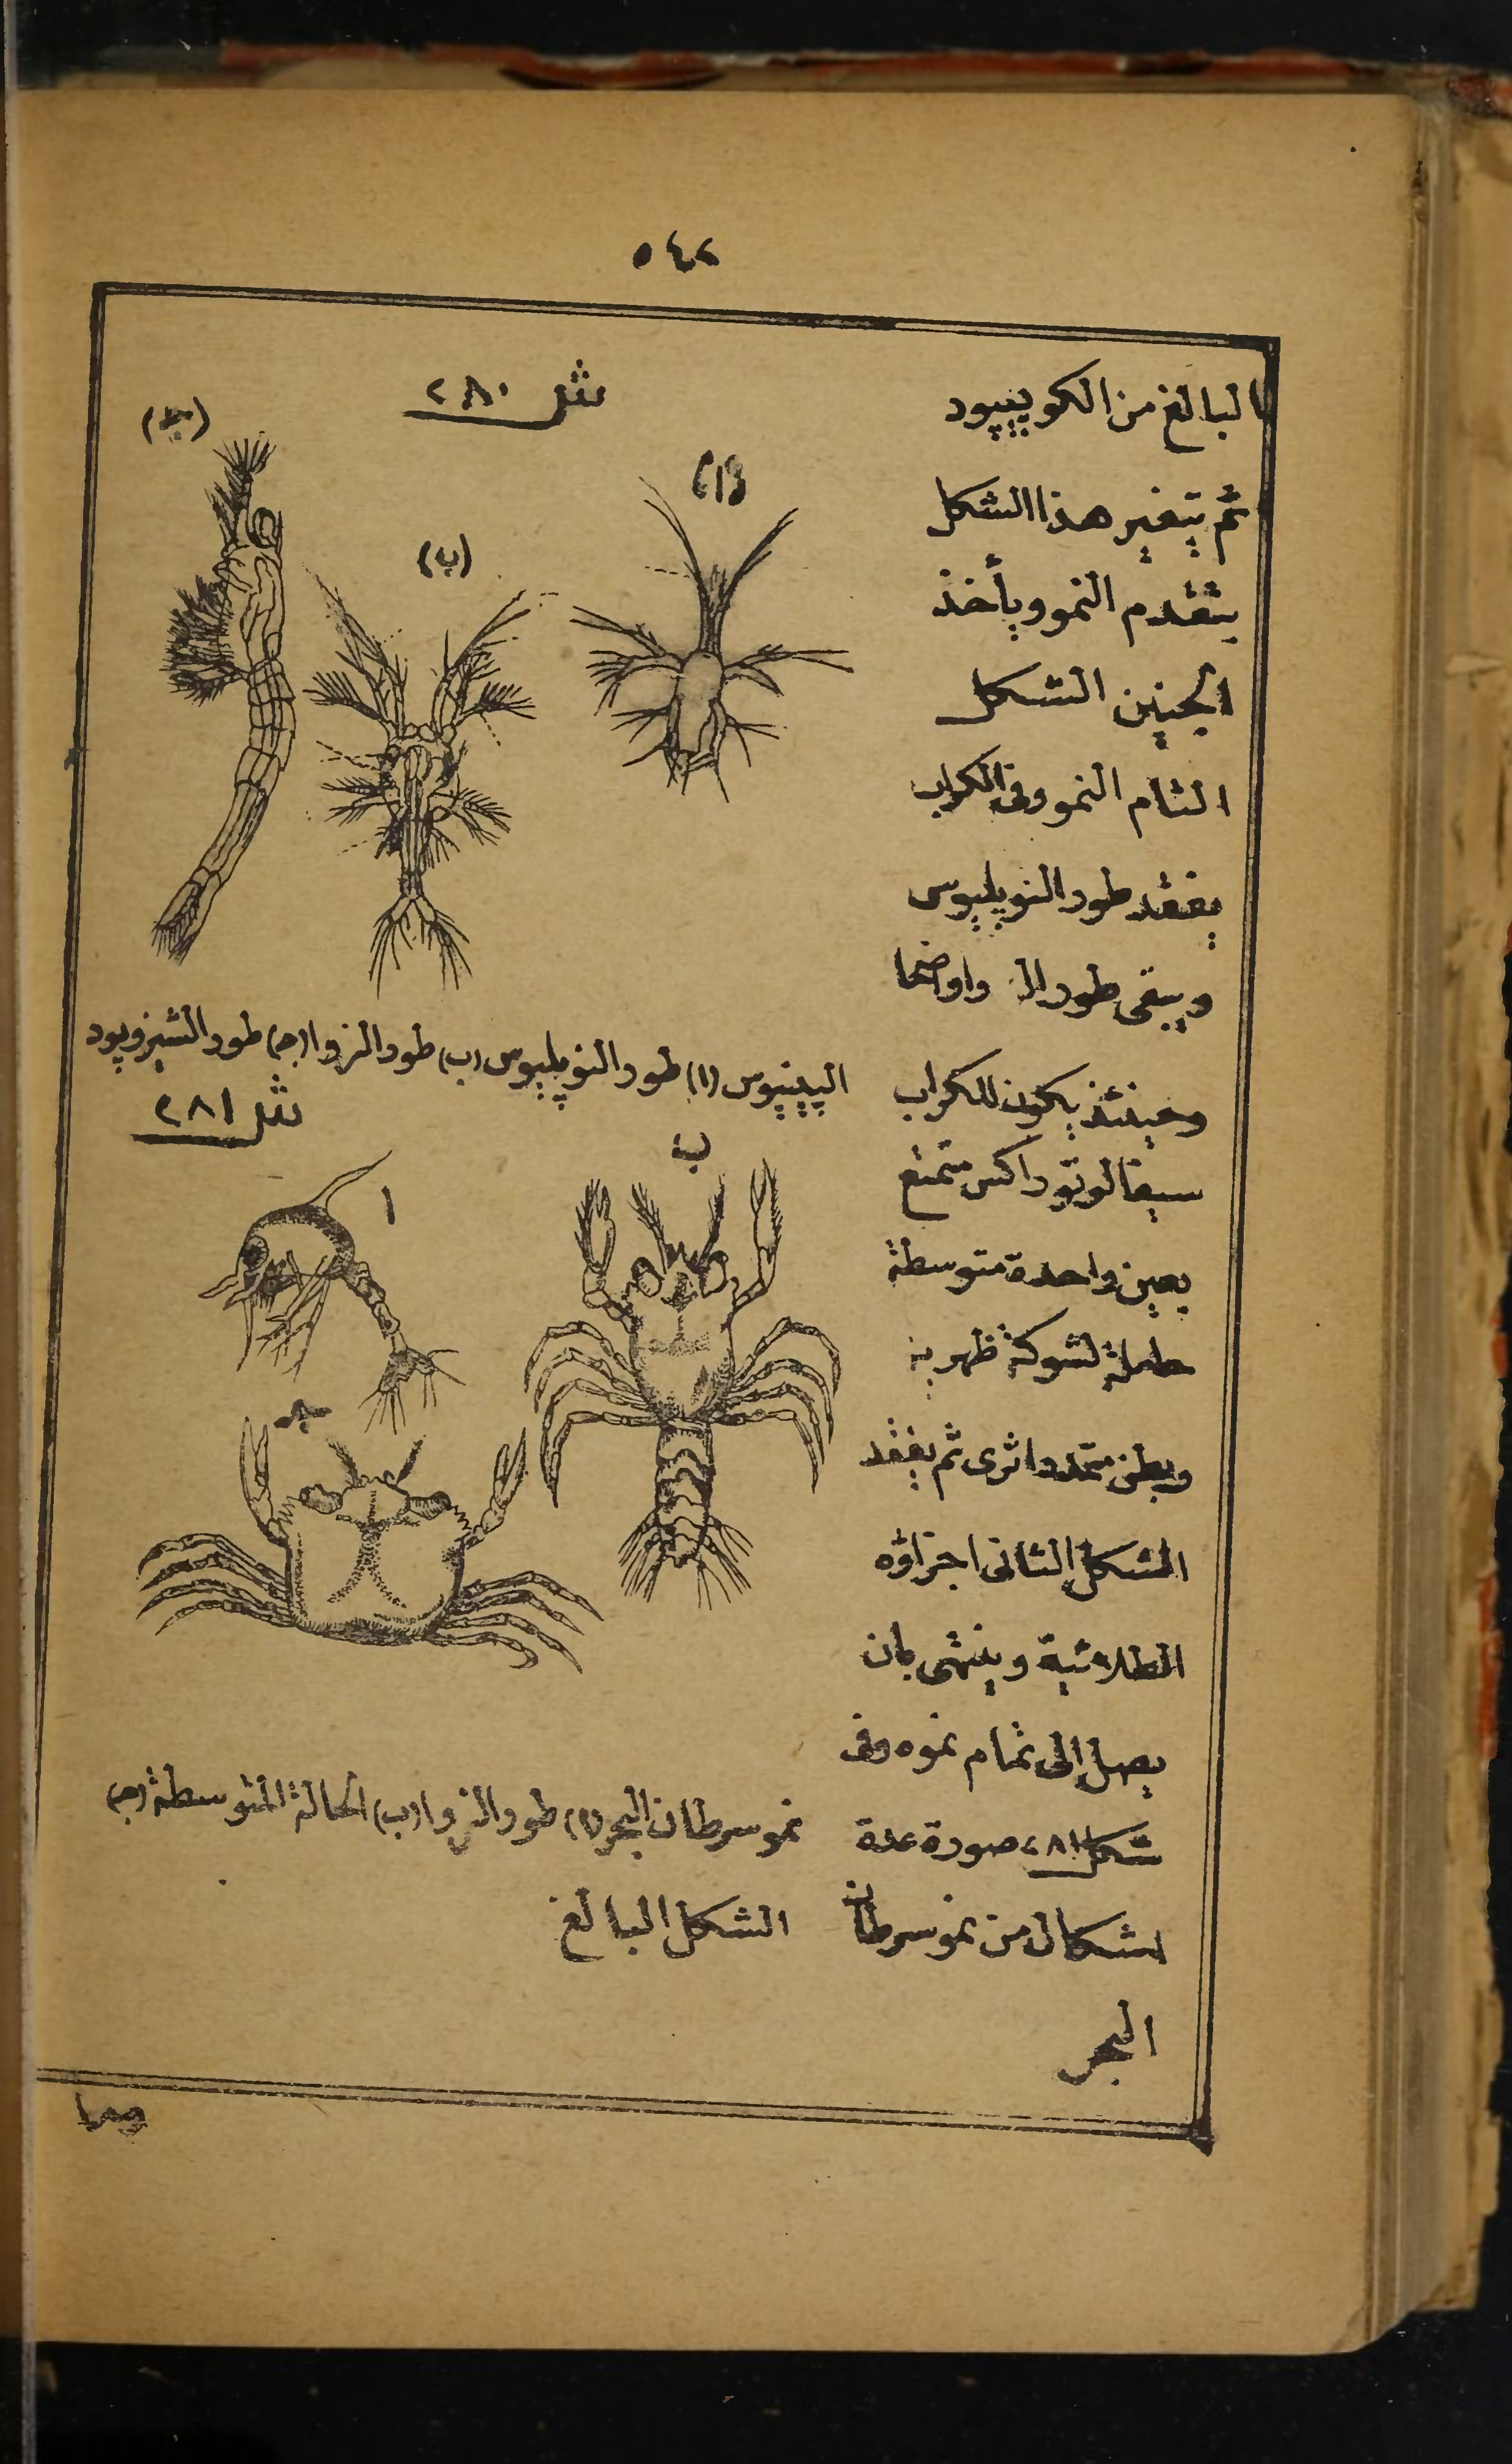 ٥٤٢
البالغ من الكوپيپود
ثم يتغير هذا الشكل
بتقدم النمو ويأخذ
الجنين الشكل
التام النمو وفى الكراب
يفقد طور النوپليوس
ويبقى طور الـ واواضحا
وحينئذ يكون للكراب
سيفالوتوراكس متمتع
بعين واحدة متوسطة
حاملة لشوكة ظهرية
وبطن متمدد اثرى ثم يفقد
الشكل الثانى اجزاؤه
الطلائية وينتهى بان
يصل الى تمام نموه وفى
شكل ٢٨١ صورة عدة
اشكال من نمو سرطان
البحر
شكل ٢٨٠
(ا)
(ب)
(ج)
الپينيوس (ا) طور النوپليوس (ب) طور الزوا (ج) طور الشيزوپود
شكل ٢٨١
ا
ب
ج
نمو سرطان البحر (ا) طور الزوا (ب) الحالة المتوسطة (ج)
الشكل البالغ